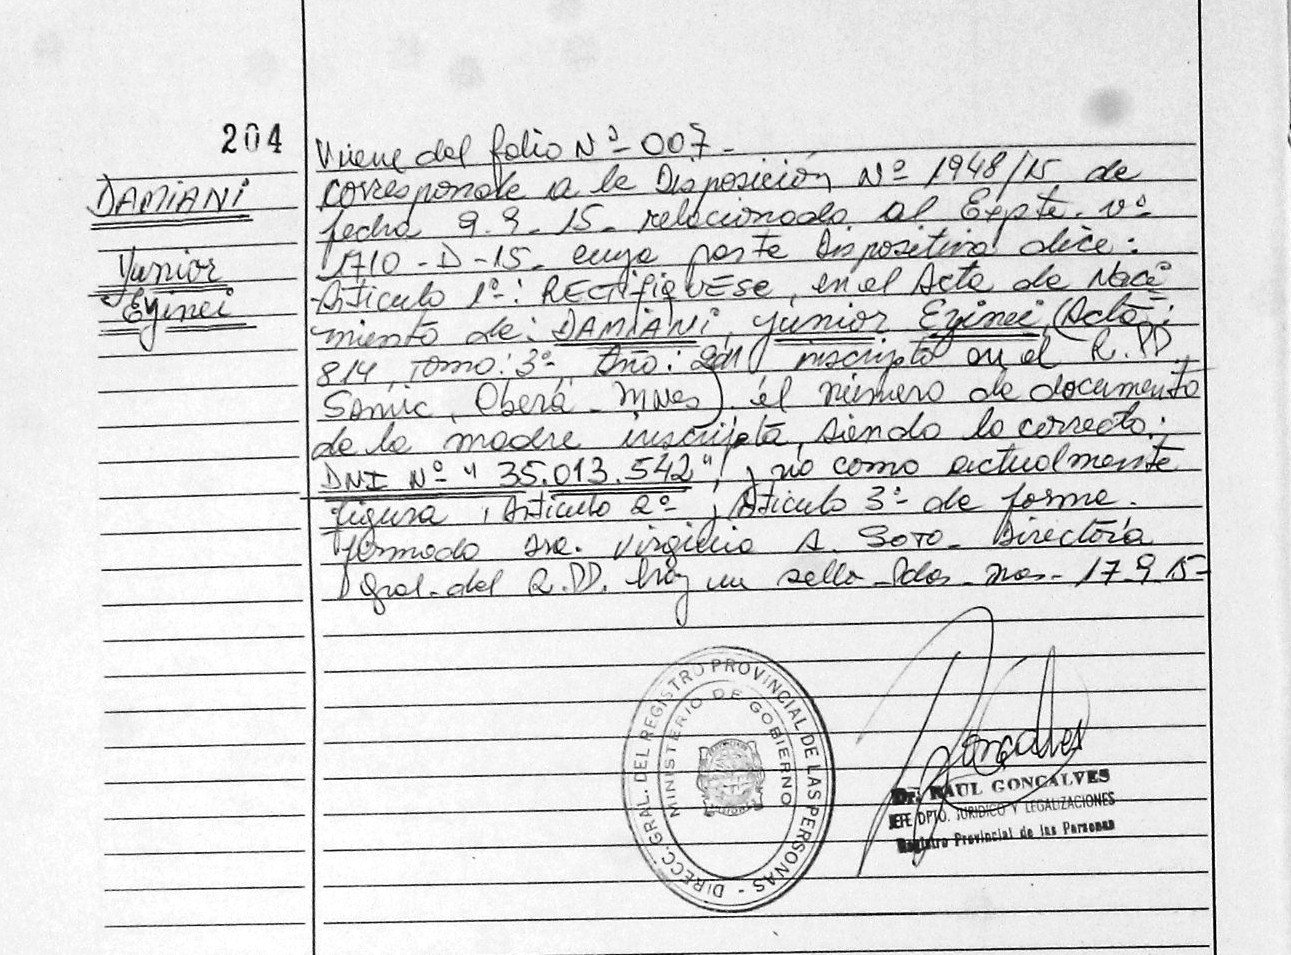 204
DAMIANI
Yunior
Ezinei
Viene del folio Nº 007-
corresponde a la Disposición Nº 1948/15 de
fecha 9-9-15- relacionado al Expte. nº
1710-D-15- cuya parte Dispositiva dice:
Articulo 1º: RECTIFIQUESE, en el Acta de Naci
miento de: DAMIANI, Yunior Ezinei (Acta:
814, Tomo: 3º Año: 2011 inscripta en el R.PP.
Samic, Oberá - Mnes) el número de documento
de la madre inscripta, siendo lo correcto:
DNI Nº "35.013.542", y no como actualmente
figura, Articulo 2º, Articulo 3º de forma.
firmado Dra. Virginia A. SOTO- Directora
Gral. del R.PP. hay un sello- Pdas- Mnes- 17-9-15-
DIRECC. GRAL. DEL REGISTRO PROVINCIAL DE LAS PERSONAS -
MINISTERIO DE GOBIERNO
Goncalves
Dr. RAUL GONCALVES
JEFE DPTO. JURIDICO Y LEGALIZACIONES
Registro Provincial de las Personas